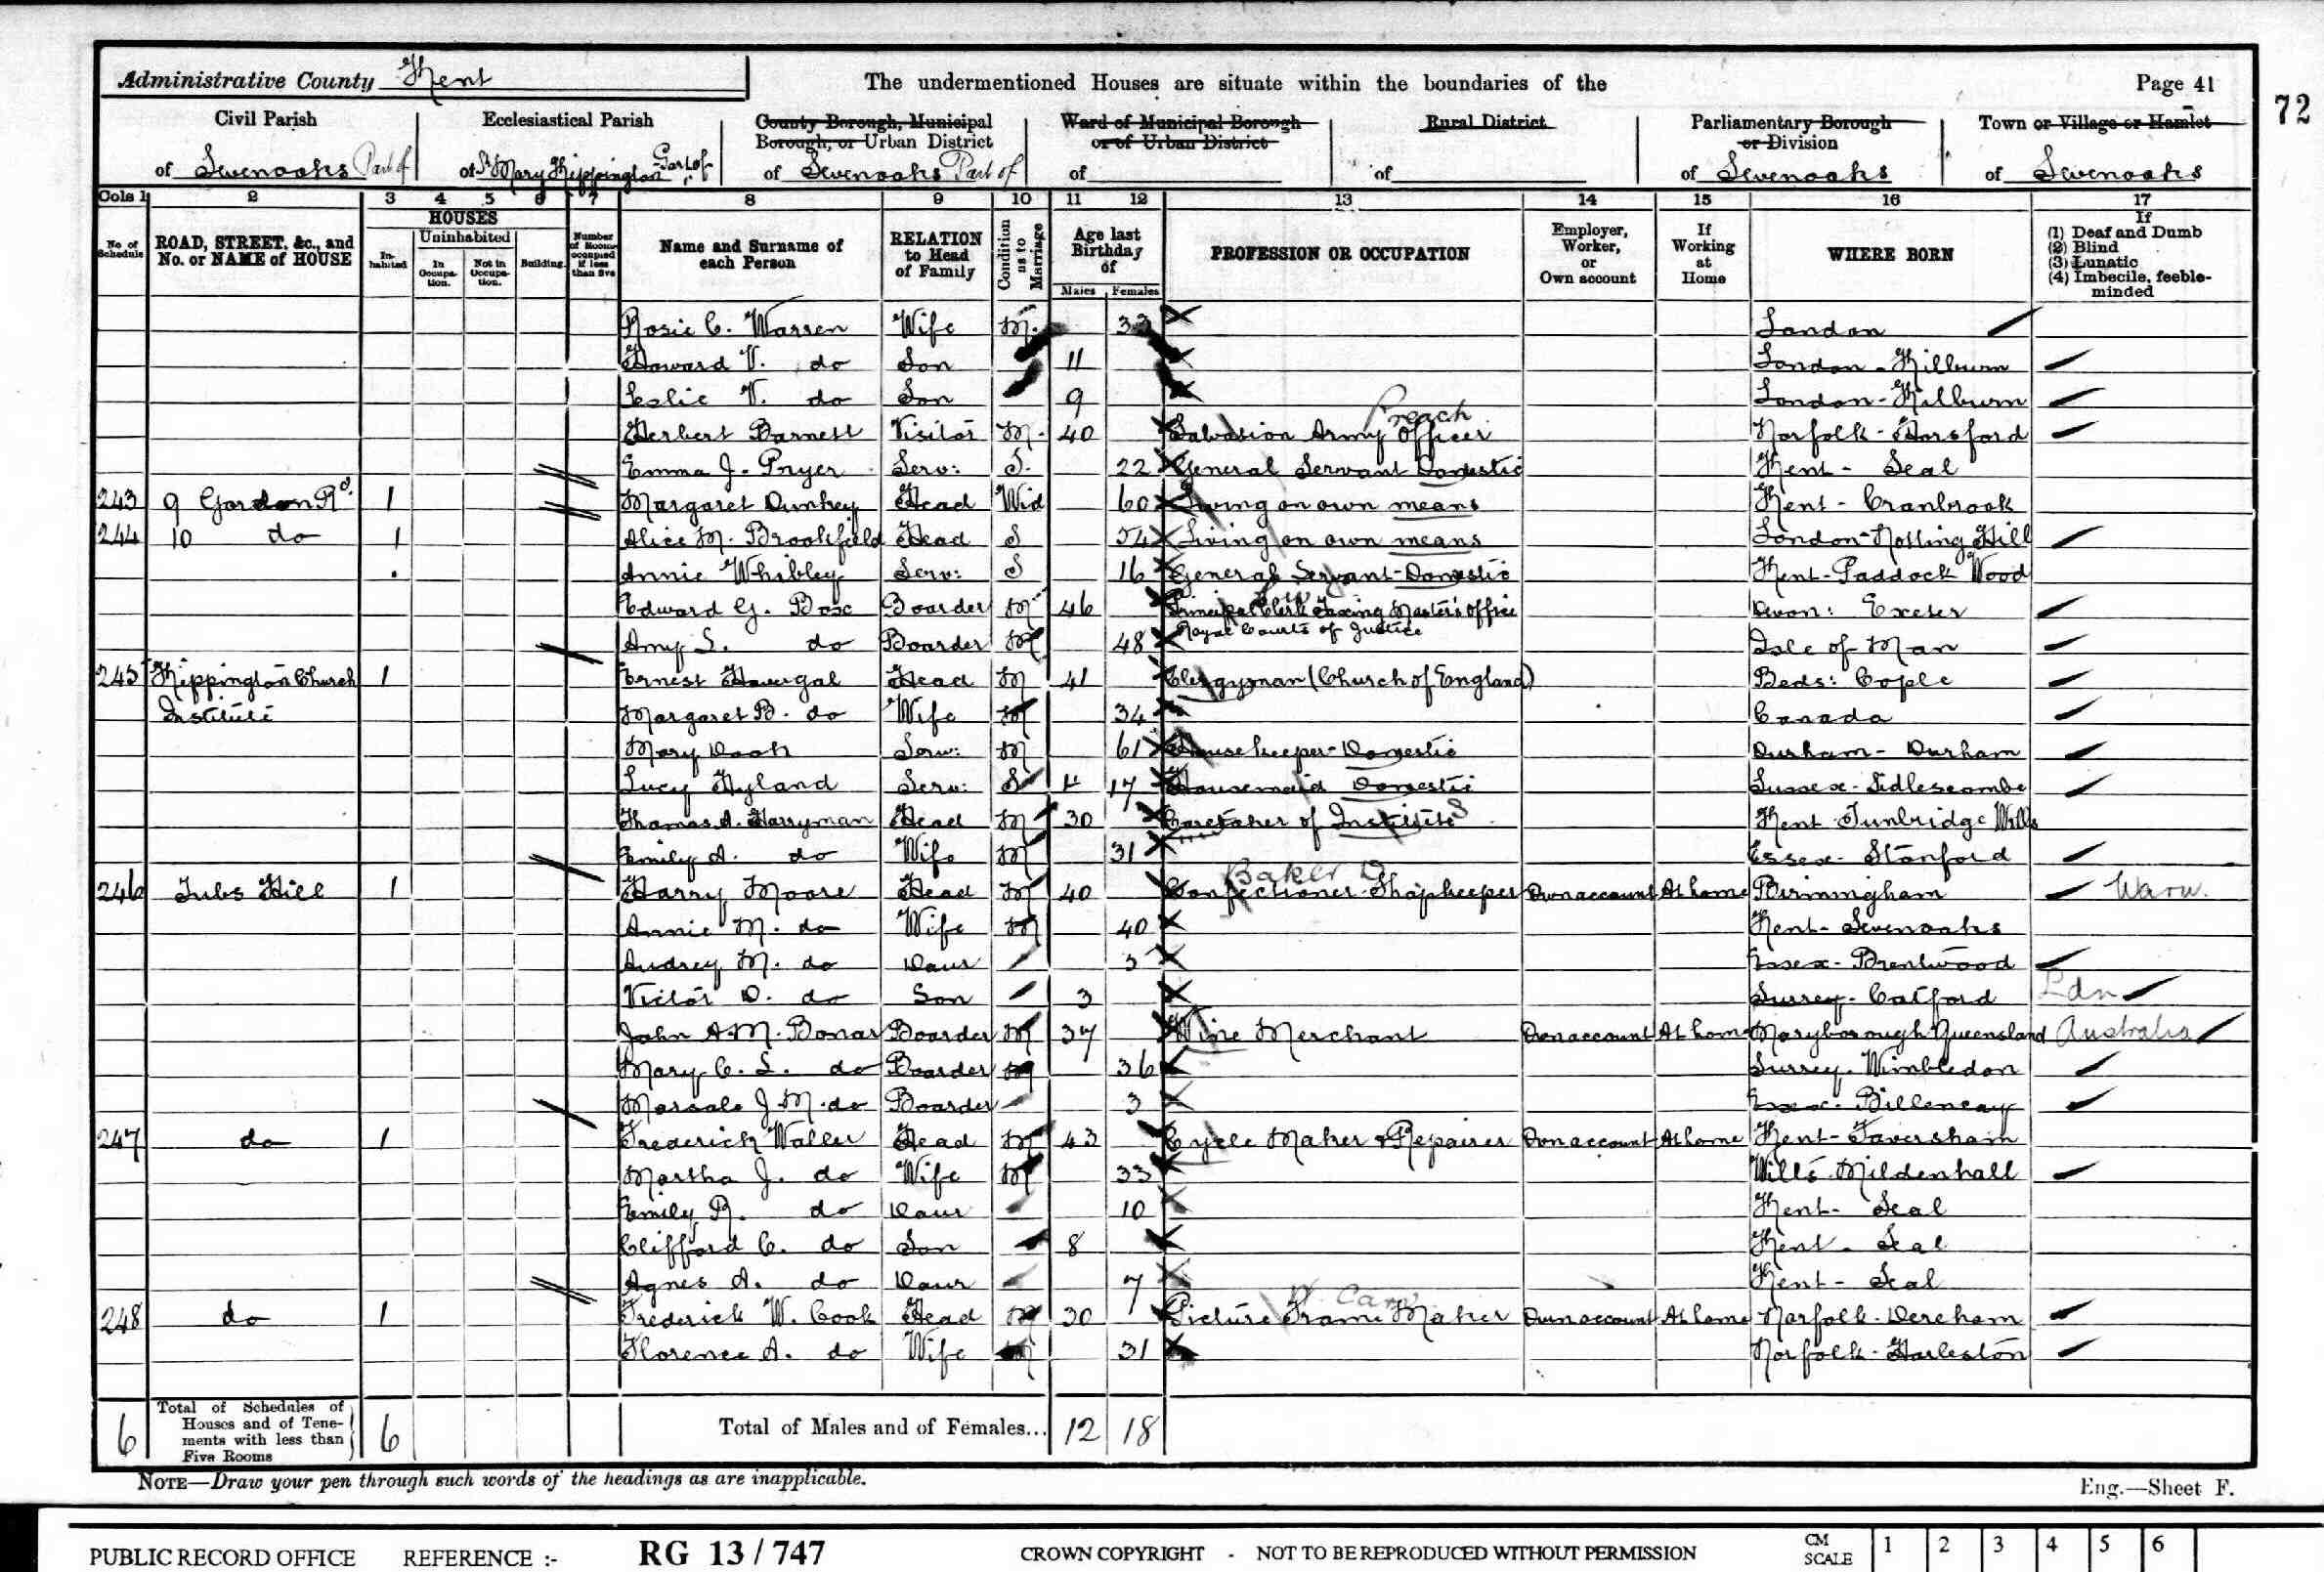 Administrative County Kent
The undermentioned Houses are situate within the boundaries of the
Page 41
72
Civil Parish
of Sevenoaks Part of
Ecclesiastical Parish
of St Mary Kippington Part of
County Borough, Municipal
Borough, or Urban District
of Sevenoaks Part of
Ward of Municipal Borough
or of Urban District
of
Rural District
of
Parliamentary Borough
or Division
of Sevenoaks
Town or Village or Hamlet
of Sevenoaks
Cols 1 2 3 4 5 6 7 8 9 10 11 12 13 14 15 16 17
No. of Schedule
ROAD, STREET, &c., and No. or NAME of HOUSE
HOUSES
In-habited
Uninhabited
In Occupa-tion.
Not in Occupa-tion.
Building.
Number of Rooms occupied if less than five
Name and Surname of each Person
RELATION to Head of Family
Condition as to Marriage
Age last Birthday of
Males Females
PROFESSION OR OCCUPATION
Employer, Worker, or Own account
If Working at Home
WHERE BORN
If
(1) Deaf and Dumb
(2) Blind
(3) Lunatic
(4) Imbecile, feeble-minded
Rosie C. Warren Wife M. 33 London
Howard V. do Son 11 London - Kilburn
Leslie V. do Son 9 London - Kilburn
Preach
Herbert Barnett Visitor M. 40 Salvation Army Officer Norfolk - Horsford
Emma J. Pryer Serv: S. 22 General Servant Domestic Kent - Seal
243 9 Gordon Rd. 1 Margaret Dunkey Head Wid 60 Living on own means Kent - Cranbrook
244 10 do 1 Alice M. Brookfield Head S 54 Living on own means London - Notting Hill
Annie Whibley Serv: S 16 General Servant - Domestic Kent - Paddock Wood
Edward G. Box Boarder M 46 Principal Clerk Taxing Master's Office Devon: Exeter
Royal Courts of Justice
Amy S. do Boarder M 48 Isle of Man
245 Kippington Church 1 Ernest Havergal Head M 41 Clergyman (Church of England) Beds: Cople
Institute Margaret B. do Wife M 34 Canada
Mary Dook Serv: M 61 Housekeeper - Domestic Durham - Durham
Lucy Hyland Serv: S 17 Housemaid Domestic Sussex - Sidlescombe
Thomas A. Harryman Head M 30 Caretaker of Institute S Kent Tunbridge Wells
Emily A. do Wife M 31 Essex - Stanford
Baker D
246 Tubs Hill 1 Harry Moore Head M 40 Confectioner Shopkeeper Own account At home Birmingham Warw.
Annie M. do Wife M 40 Kent - Sevenoaks
Audrey M. do Daur 5 Essex - Brentwood
Victor D. do Son 3 Surrey - Catford Ldn
John A. M. Bonar Boarder M 37 Wine Merchant Own account At home Maryborough Queensland Australia
Mary C. S. do Boarder M 36 Surrey. Wimbledon
J. M. do Boarder 3 Essex. Billericay
247 do 1 Frederick Waller Head M 43 Cycle Maker & Repairer Own account At home Kent - Faversham
Martha J. do Wife M 33 Wilts Mildenhall
Emily R. do Daur 10 Kent - Seal
Clifford C. do Son 8 Kent - Seal
Agnes A. do Daur 7 Kent - Seal
248 do 1 Frederick W. Cook Head M 30 Picture Frame Maker Own account At home Norfolk - Dereham
Florence A. do Wife M 31 Norfolk - Harleston
6 Total of Schedules of Houses and of Tene-ments with less than Five Rooms 6 Total of Males and of Females... 12 18
NOTE—Draw your pen through such words of the headings as are inapplicable.
Eng.—Sheet F.
PUBLIC RECORD OFFICE REFERENCE :- RG 13 / 747 CROWN COPYRIGHT - NOT TO BE REPRODUCED WITHOUT PERMISSION CM SCALE 1 2 3 4 5 6